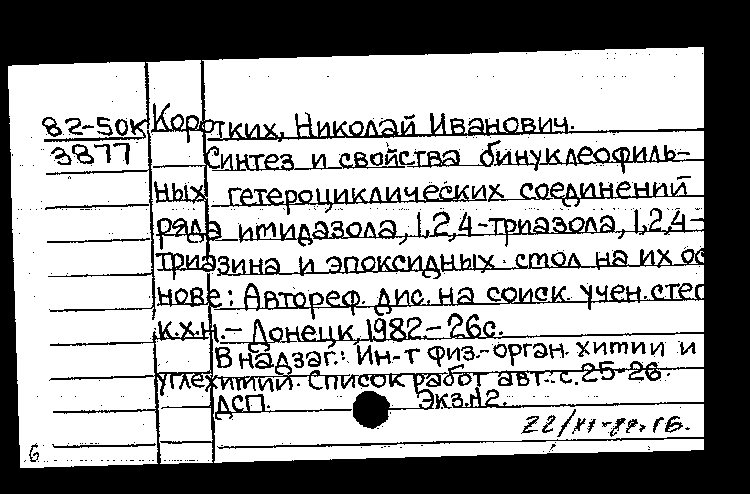 82-50К
3877
Коротких, Николай Иванович.
Синтез и свойства бинуклеофиль-
ных гетероциклических соединений
ряда имидазола, 1,2,4-триазола, 1,2,4-
триазина и эпоксидных стол на их ос
нове: Автореф. дис. на соиск. учен. степ
к.х.н. - Донецк, 1982. - 26с.
В надзаг.: Ин-т физ.-орган. химии и
углехимии. Список работ авт.: с. 25-26.
ДСП. Экз.№2.
22/
6